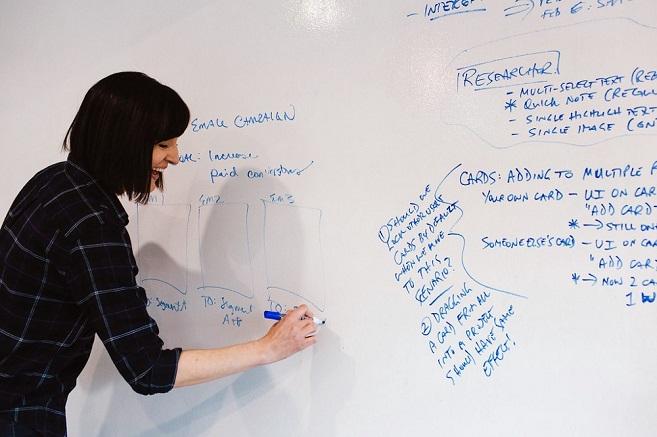 - INTERCEPT
FEB 6:
RESEARCHER
- MULTI-SELECT TEXT (REG
* QUICK NOTE (REGUL
- SINGLE HIGHLIGHT TEXT
- SINGLE IMAGE (ON
EMAIL CAMPAIGN
: Increase
paid conversions
em2
em3
TO: Segment
TO:
App
CARDS: ADDING TO MULTIPLE P
YOUR OWN CARD - UI ON CAR
"ADD CARD
* → STILL ON
SOMEONE ELSE'S CARD - UI ON CAR
"ADD CAR
* → NOW 2 CA
1
① SHOULD WE
LOCK OTHER USERS'
CARDS BY DEFAULT
WHEN WE MOVE
TO THIS
SCENARIO?
② DRAGGING
A CARD FROM ALL
INTO A PROJECT
SHOULD HAVE SAME
EFFECT!